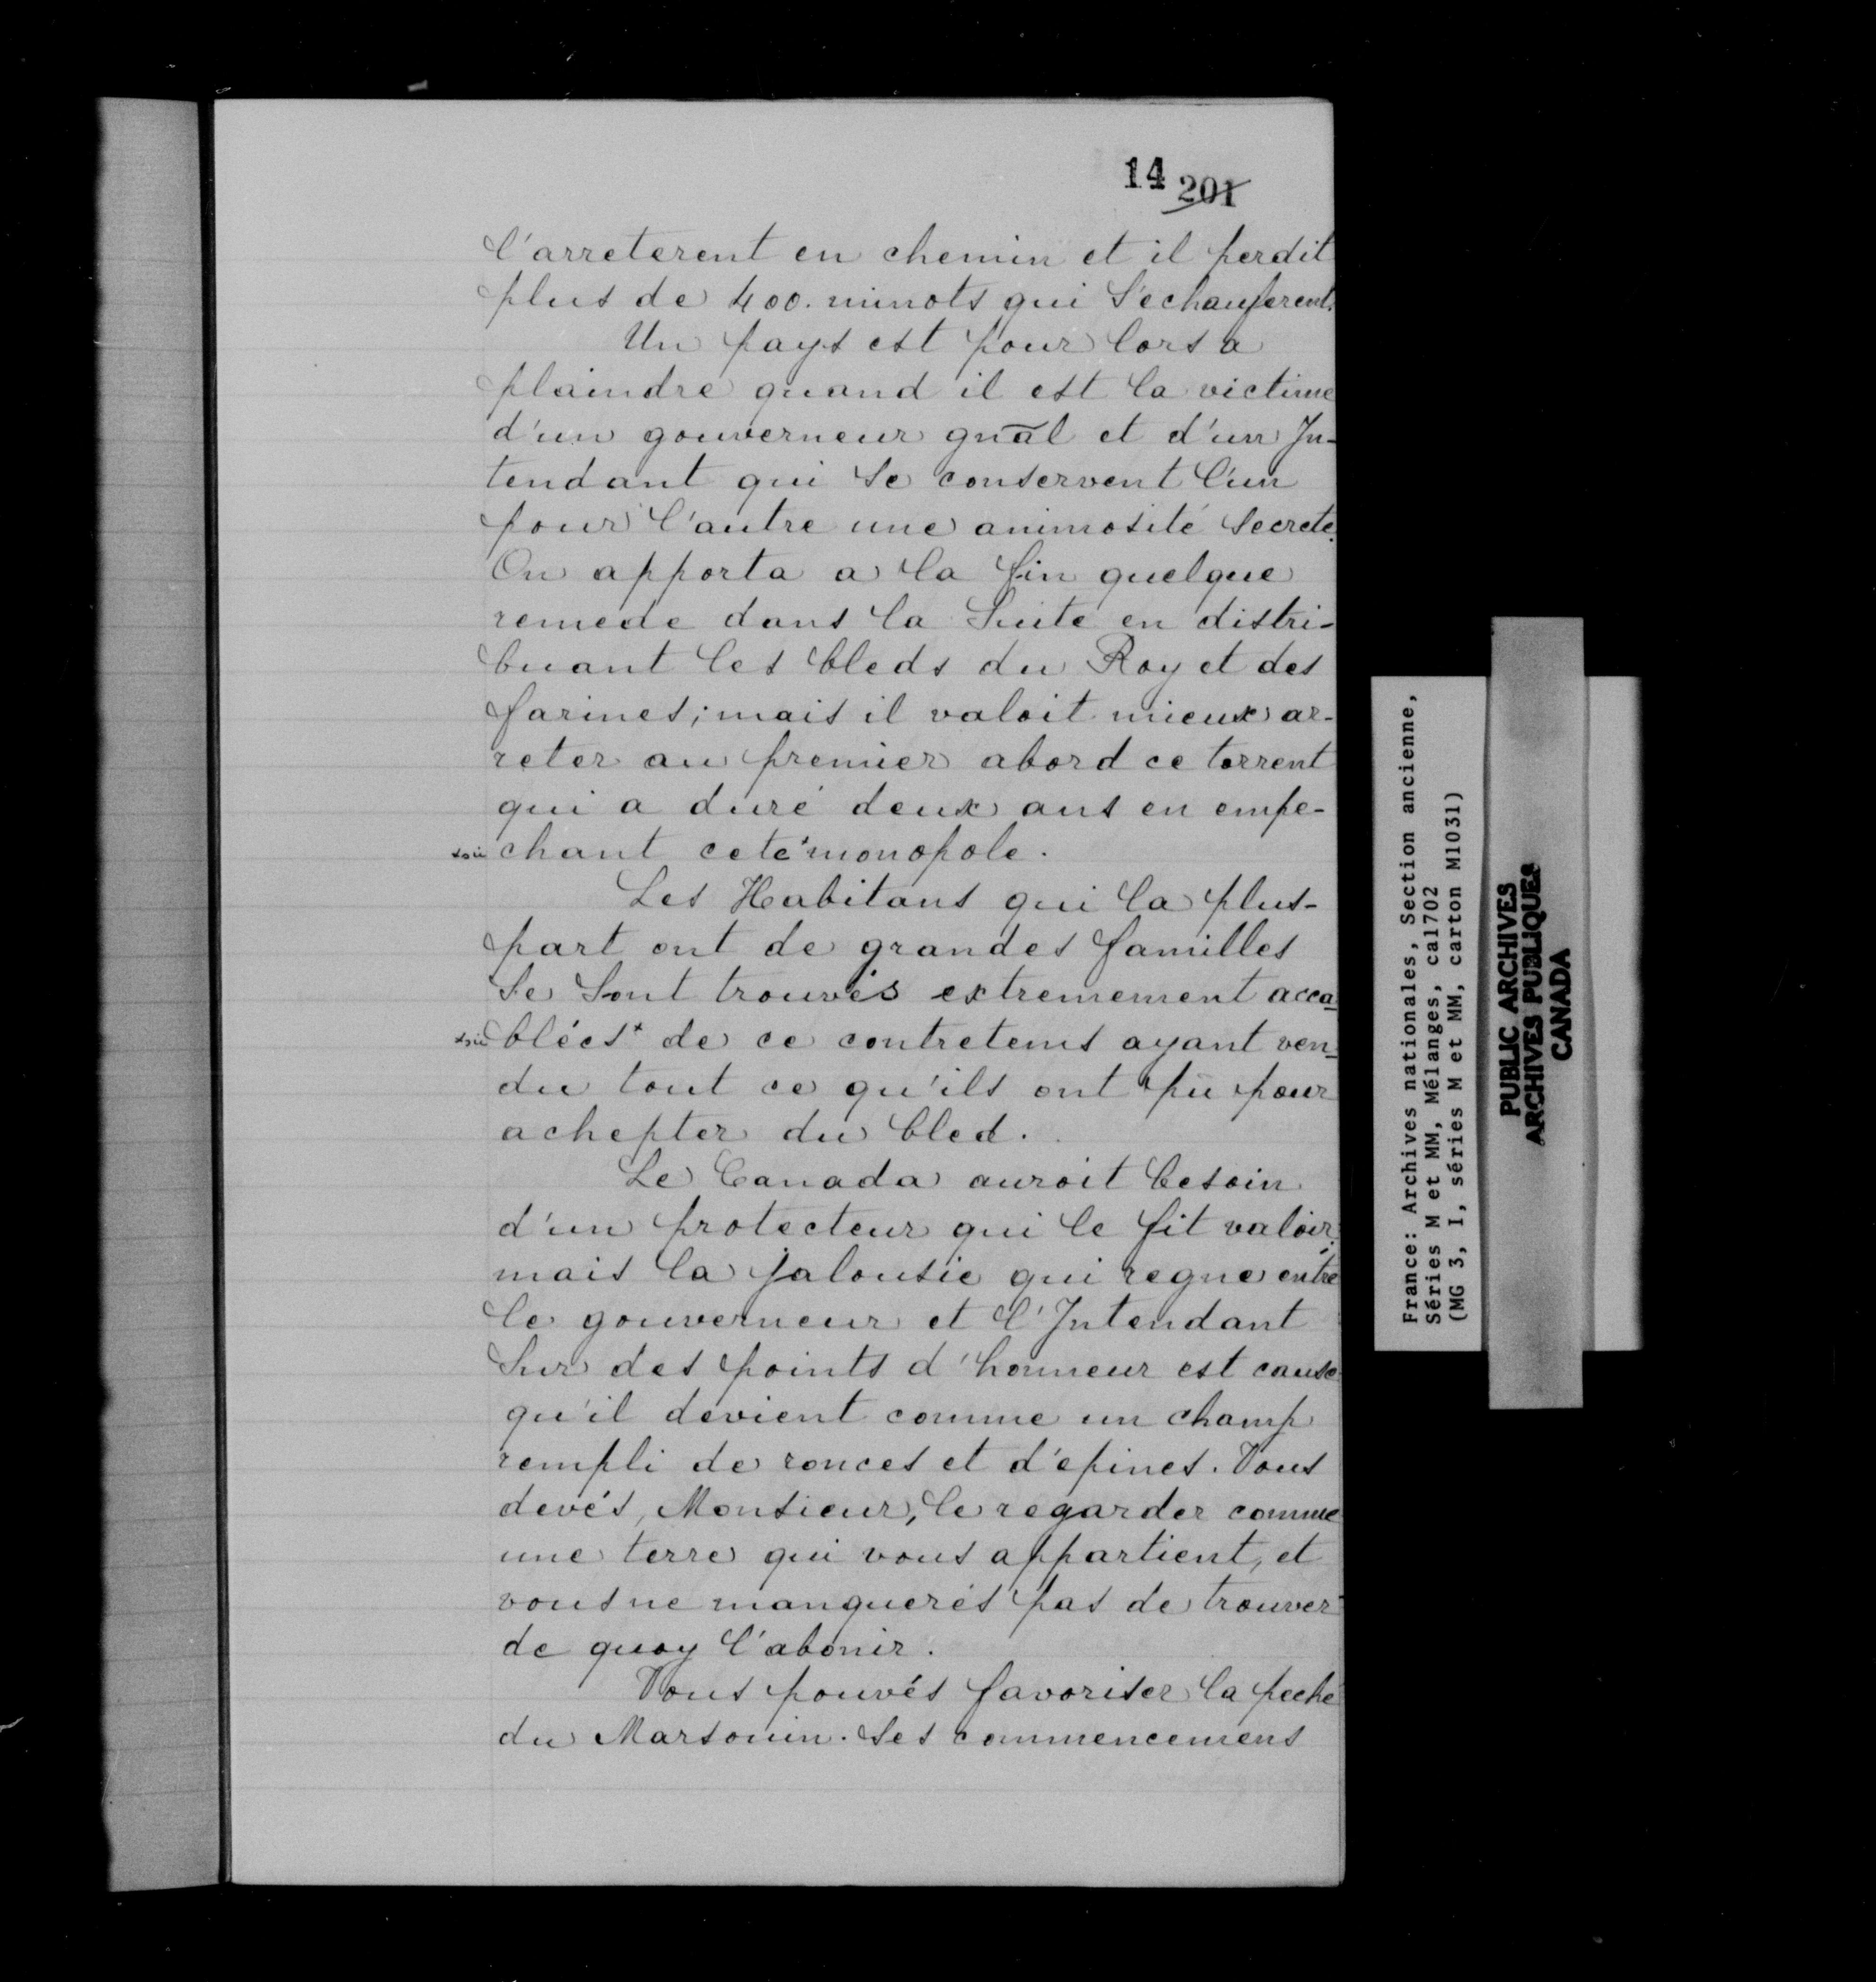 14 201
l'arreterent en chemin et il perdit
plus de 400. minots qui s'echauferent.
Un pays est pour lors a
plaindre quand il est la victime
d'un gouverneur gnāl et d'un In-
tendant qui se conservent l'un
pour l'autre une animosité secrete.
On apporta a la fin quelque
remede dans la suite en distri-
buant les bleds du Roy et des
farines; mais il valoit mieux ar-
reter au premier abord ce torrent
qui a duré deux ans en empe-
xsic chant cete x monopole.
Les Habitans qui la plus-
part ont de grandes familles
se sont trouvés extremement acca-
xsic blées x de ce contretems ayant ven-
du tout ce qu'ils ont pû pour
achepter du bled.
Le Canada auroit besoin
d'un protecteur qui le fit valoir;
mais la jalousie qui regne entre
le gouverneur et l'Intendant
sur des points d'honneur est cause
qu'il devient comme un champ
rempli de ronces et d'épines. Vous
devés, Monsieur, le regarder comme
une terre qui vous appartient, et
vous ne manquerés pas de trouver
de quoy l'abonir.
Vous pouvés favoriser la peche
du Marsouin. Ses commencemens
France: Archives nationales, Section ancienne,
Séries M et MM, Mélanges, ca1702
(MG 3, I, séries M et MM, carton M1031)
PUBLIC ARCHIVES
ARCHIVES PUBLIQUES
CANADA